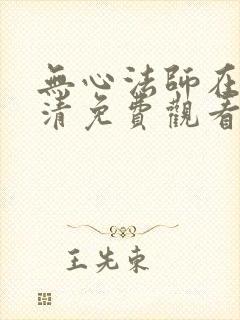 無心法師在
清免費觀看
王先東